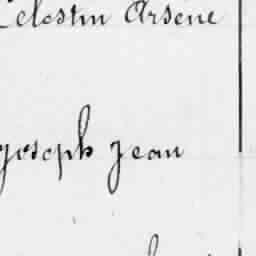 Celestin Arsène
Joseph Jean